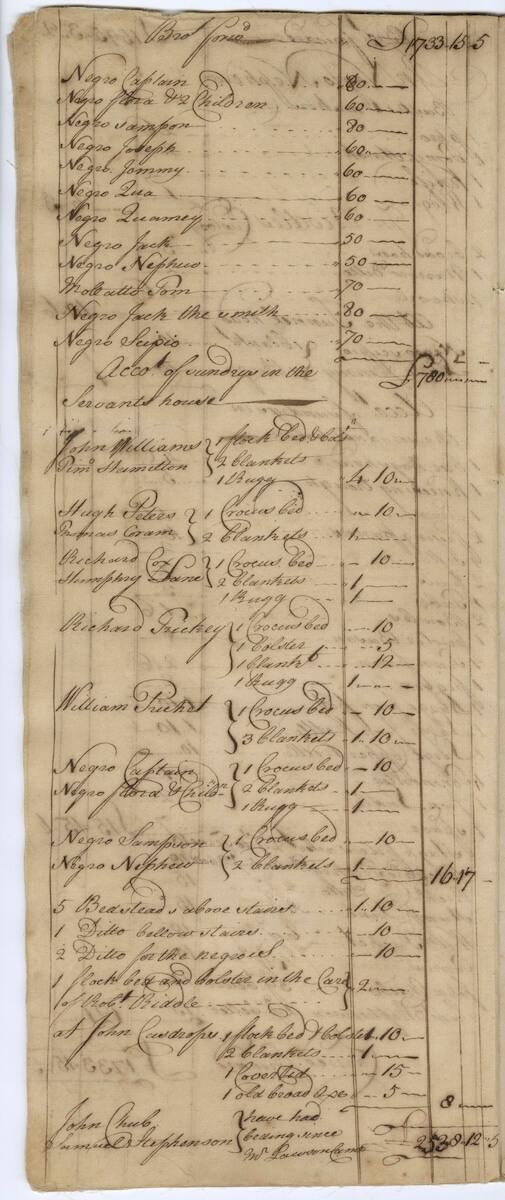 Bro.t forwd £ 1733 - 15 - 5
Negro Captain 80
Negro flora & 2 Children 60
Negro Sampson 80
Negro Joseph 60
Negro Jemmy 60
Negro Qua 60
Negro Quamey 60
Negro Jack 50
Negro Nephew 50
Molatto Tom 70
Negro Jack the smith 80
Negro Scipio 70
£ 780
Acco.t of sundrys in the
Servants house
John Williams } 1 flock bed & bols.r
Hamilton } 2 blankets
1 Rugg 4 10
Hugh Peters } 1 Crocus bed 10
Thomas Coram } 2 blankets 1
Richard Cox } 1 Crocus bed 10
Humphry Lane } 2 blankets 1
1 Rugg 1
Richard Trickey } 1 Crocus bed 10
1 bolster 5
1 blank.t 12
1 Rugg 1
William Pricket } 1 Crocus bed 10
3 blankets 1 10
Negro Captain } 1 Crocus bed 10
Negro flora & Child.n } 2 blankets 1
1 Rugg 1
Negro Sampson } 1 Crocus bed 10
Negro Nephew } 2 blankets 1
16 - 17
5 Bedsteads above stairs 1 10
1 Ditto bellow stairs 10
2 Ditto for the negroes 10
1 flock bed and bolster in the Care
of Rob.t Riddle } 2
at John Casdrops 1 flock bed & bolster 1 10
2 blankets 1
1 Coverled 15
1 old broad axe 5
8
John Chub } have had
Samuel Stephenson } beding since
M.r Lawson Came
£ 2538 - 12 - 5